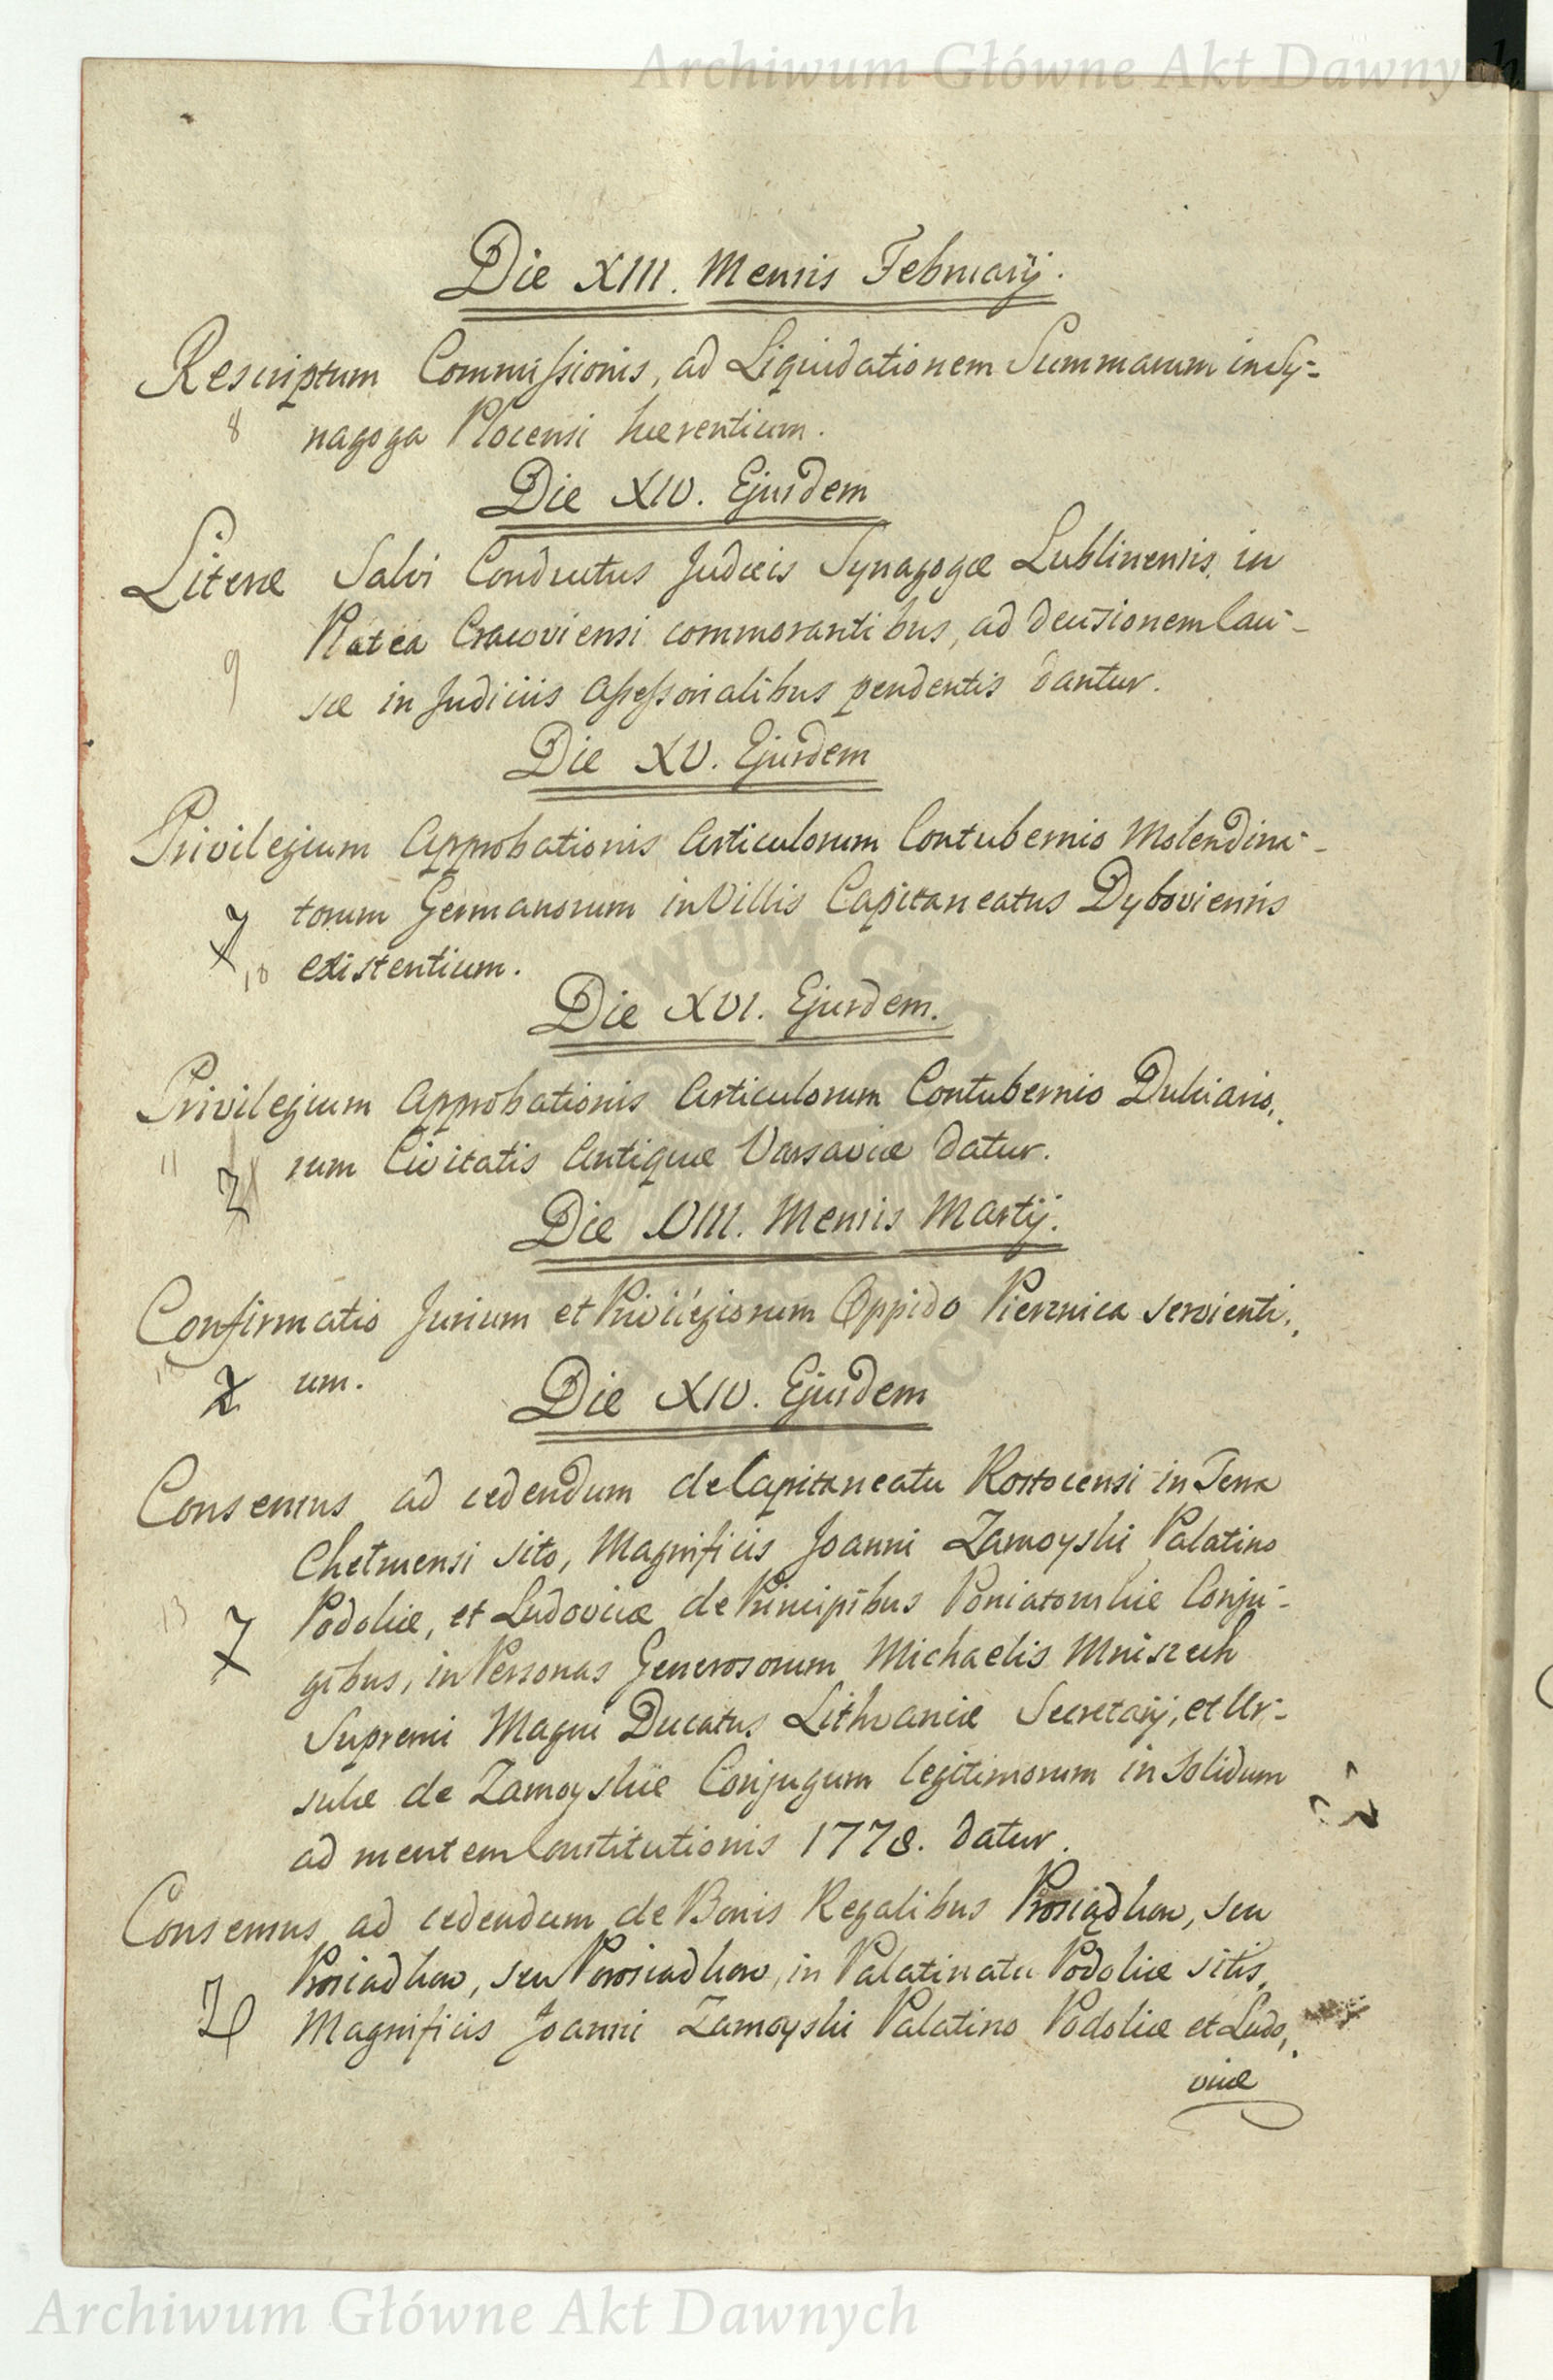 Archiwum Główne Akt Dawnych
Die XIII. Mensis Februarij.
Rescriptum Commissionis, ad Liquidationem Summarum in Sy=
8 nagoga Plocensi hærentium.
Die XIV. Ejusdem
Literæ Salvi Conductus Judicis Synagogæ Lublinensis in
Platea Cracoviensi commorantibus, ad decisionem Cau-
9 sæ in Judiciis Assessorialibus pendentis datur.
Die XV. Ejusdem
Privilegium Approbationis Articulorum Contubernio Molendina-
torum Germanorum in Villis Capitaneatus Dyboviensis
10 existentium.
Die XVI. Ejusdem.
Privilegium Approbationis Articulorum Contubernio Dulciario,,
11 rum Civitatis Antiquæ Varsaviæ datur.
Die VIII. Mensis Martij.
Confirmatio Jurium et Privilegiorum Oppido Pierznica servienti,,
um.
Die XIV. Ejusdem
Consensus ad cedendum de Capitaneatu Rostocensi in Terra
Chełmensi sito, Magnificis Joanni Zamoyski Palatino
13 Podoliæ, et Ludovicæ de Principibus Poniatowskie Conju-
gibus, in Personas Generosorum Michaelis Mniszech
Supremi Magni Ducatus Lithvaniæ Secretarij, et Ur=
sulæ de Zamoyskie Conjugum legitimorum in solidum
ad mentem Constitutionis 1778. datur.
Consensus ad cedendum de Bonis Regalibus Prosiądkow, seu
Prosiadkow, seu Porosiadkow, in Palatinatu Podoliæ sitis,
Magnificis Joanni Zamoyski Palatino Podoliæ et Ludo,,
vicæ
Archiwum Główne Akt Dawnych